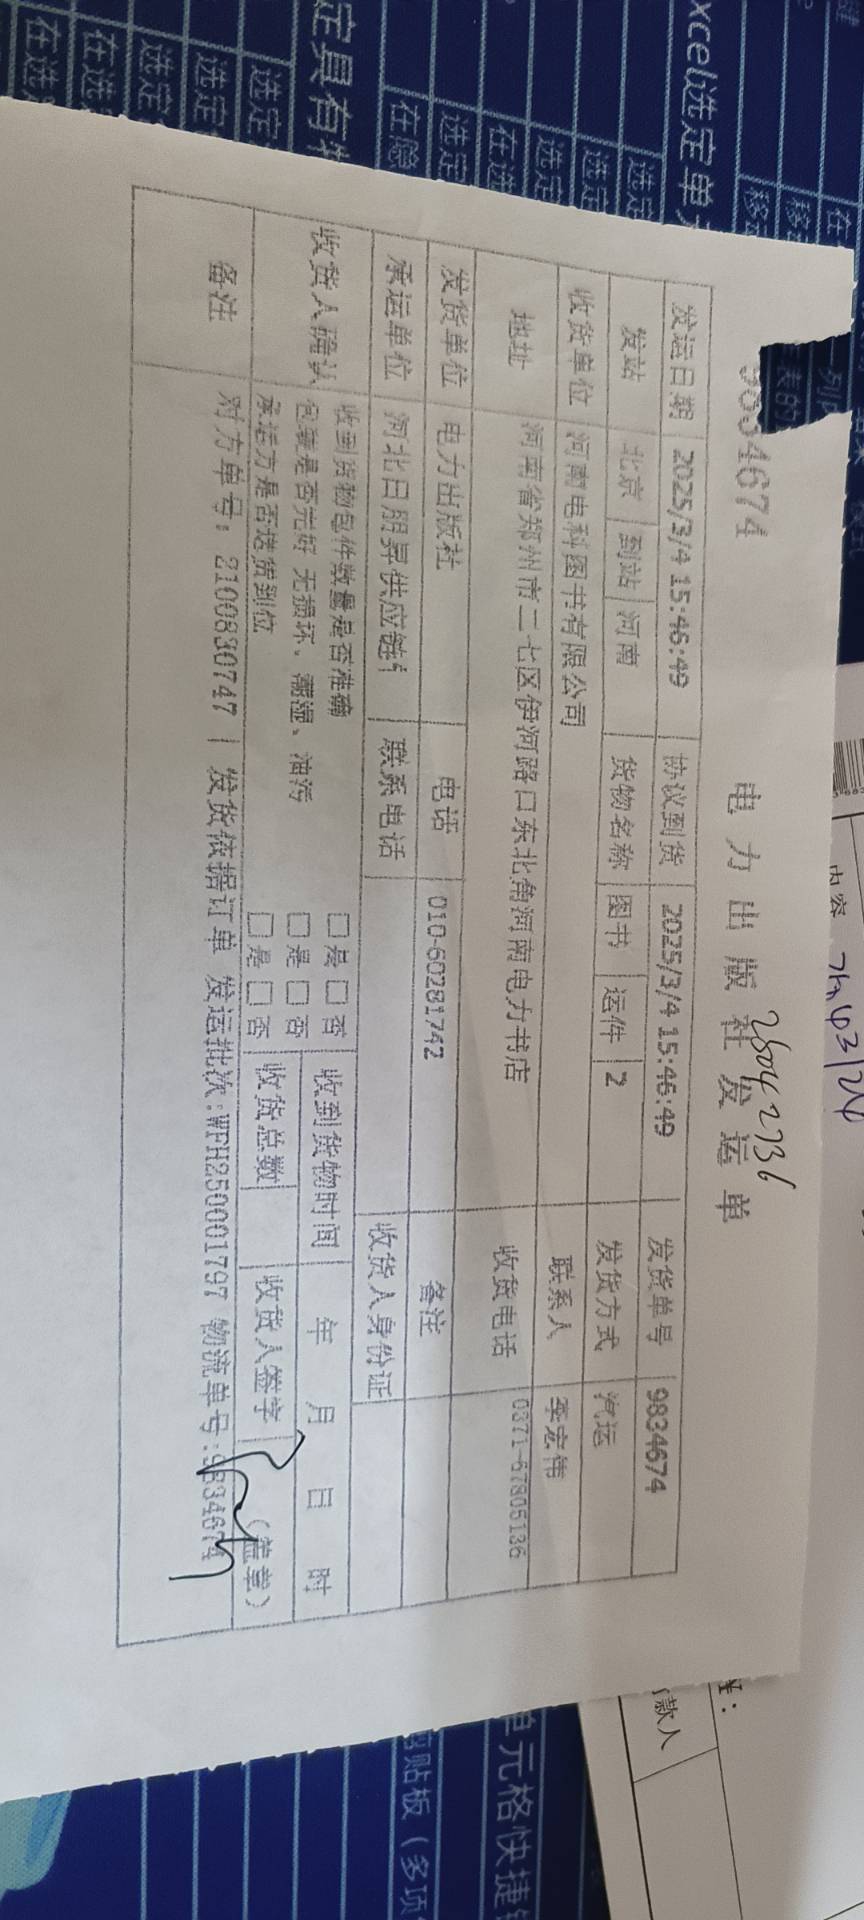 电力出版社发运单
28042736
发运日期 2025/3/4 15:46:49 协议到货 2025/3/4 15:46:49 发货单号 9834674
发站 北京 到站 河南 货物名称 图书 运件 2 发货方式 汽运
收货单位 河南电科图书有限公司 联系人 李宏伟
地址 河南省郑州市二七区伊河路口东北角河南电力书店 收货电话 0371-67905136
发货单位 电力出版社 电话 010-60281742 备注
承运单位 河北日朋昇供应链 联系电话 收货人身份证
收货人确认 收到货物包件数量是否准确 □是□否 收到货物时间 年 月 日 时
包装是否完好 无损坏、潮湿、油污 □是□否
承运方是否送货到位 □是□否 收货总数 收货人签字 (盖章)
备注 对方单号: 2100830747 | 发货依据订单 发运批次:WFH250001797 物流单号:9834674
内容
款人
xcel选定单
定具有
单元格快捷
贴板（多项